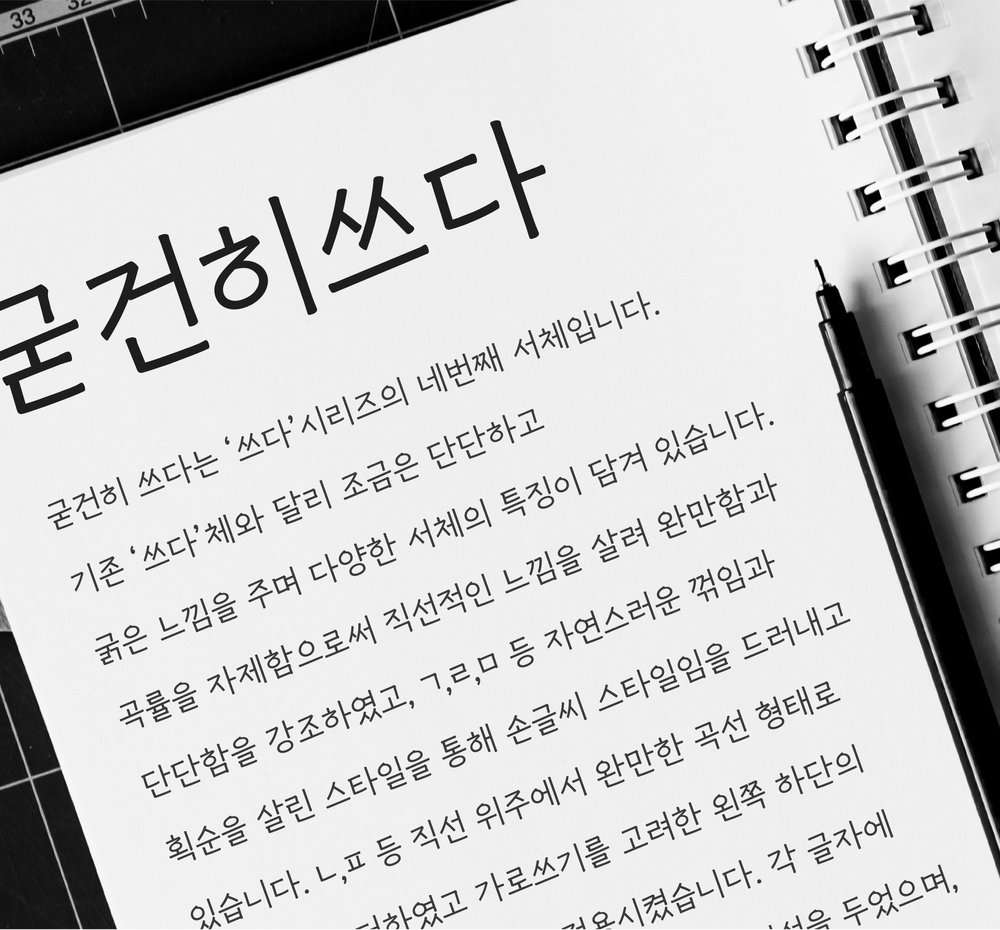 33 32
굳건히쓰다
굳건히 쓰다는 ‘쓰다’시리즈의 네번째 서체입니다.
기존 ‘쓰다’체와 달리 조금은 단단하고
굵은 느낌을 주며 다양한 서체의 특징이 담겨 있습니다.
곡률을 자제함으로써 직선적인 느낌을 살려 완만함과
단단함을 강조하였고, ㄱ,ㄹ,ㅁ 등 자연스러운 꺾임과
획순을 살린 스타일을 통해 손글씨 스타일임을 드러내고
있습니다. ㄴ,ㅍ 등 직선 위주에서 완만한 곡선 형태로
가로쓰기를 고려한 왼쪽 하단의
적용시켰습니다. 각 글자에
두었으며,